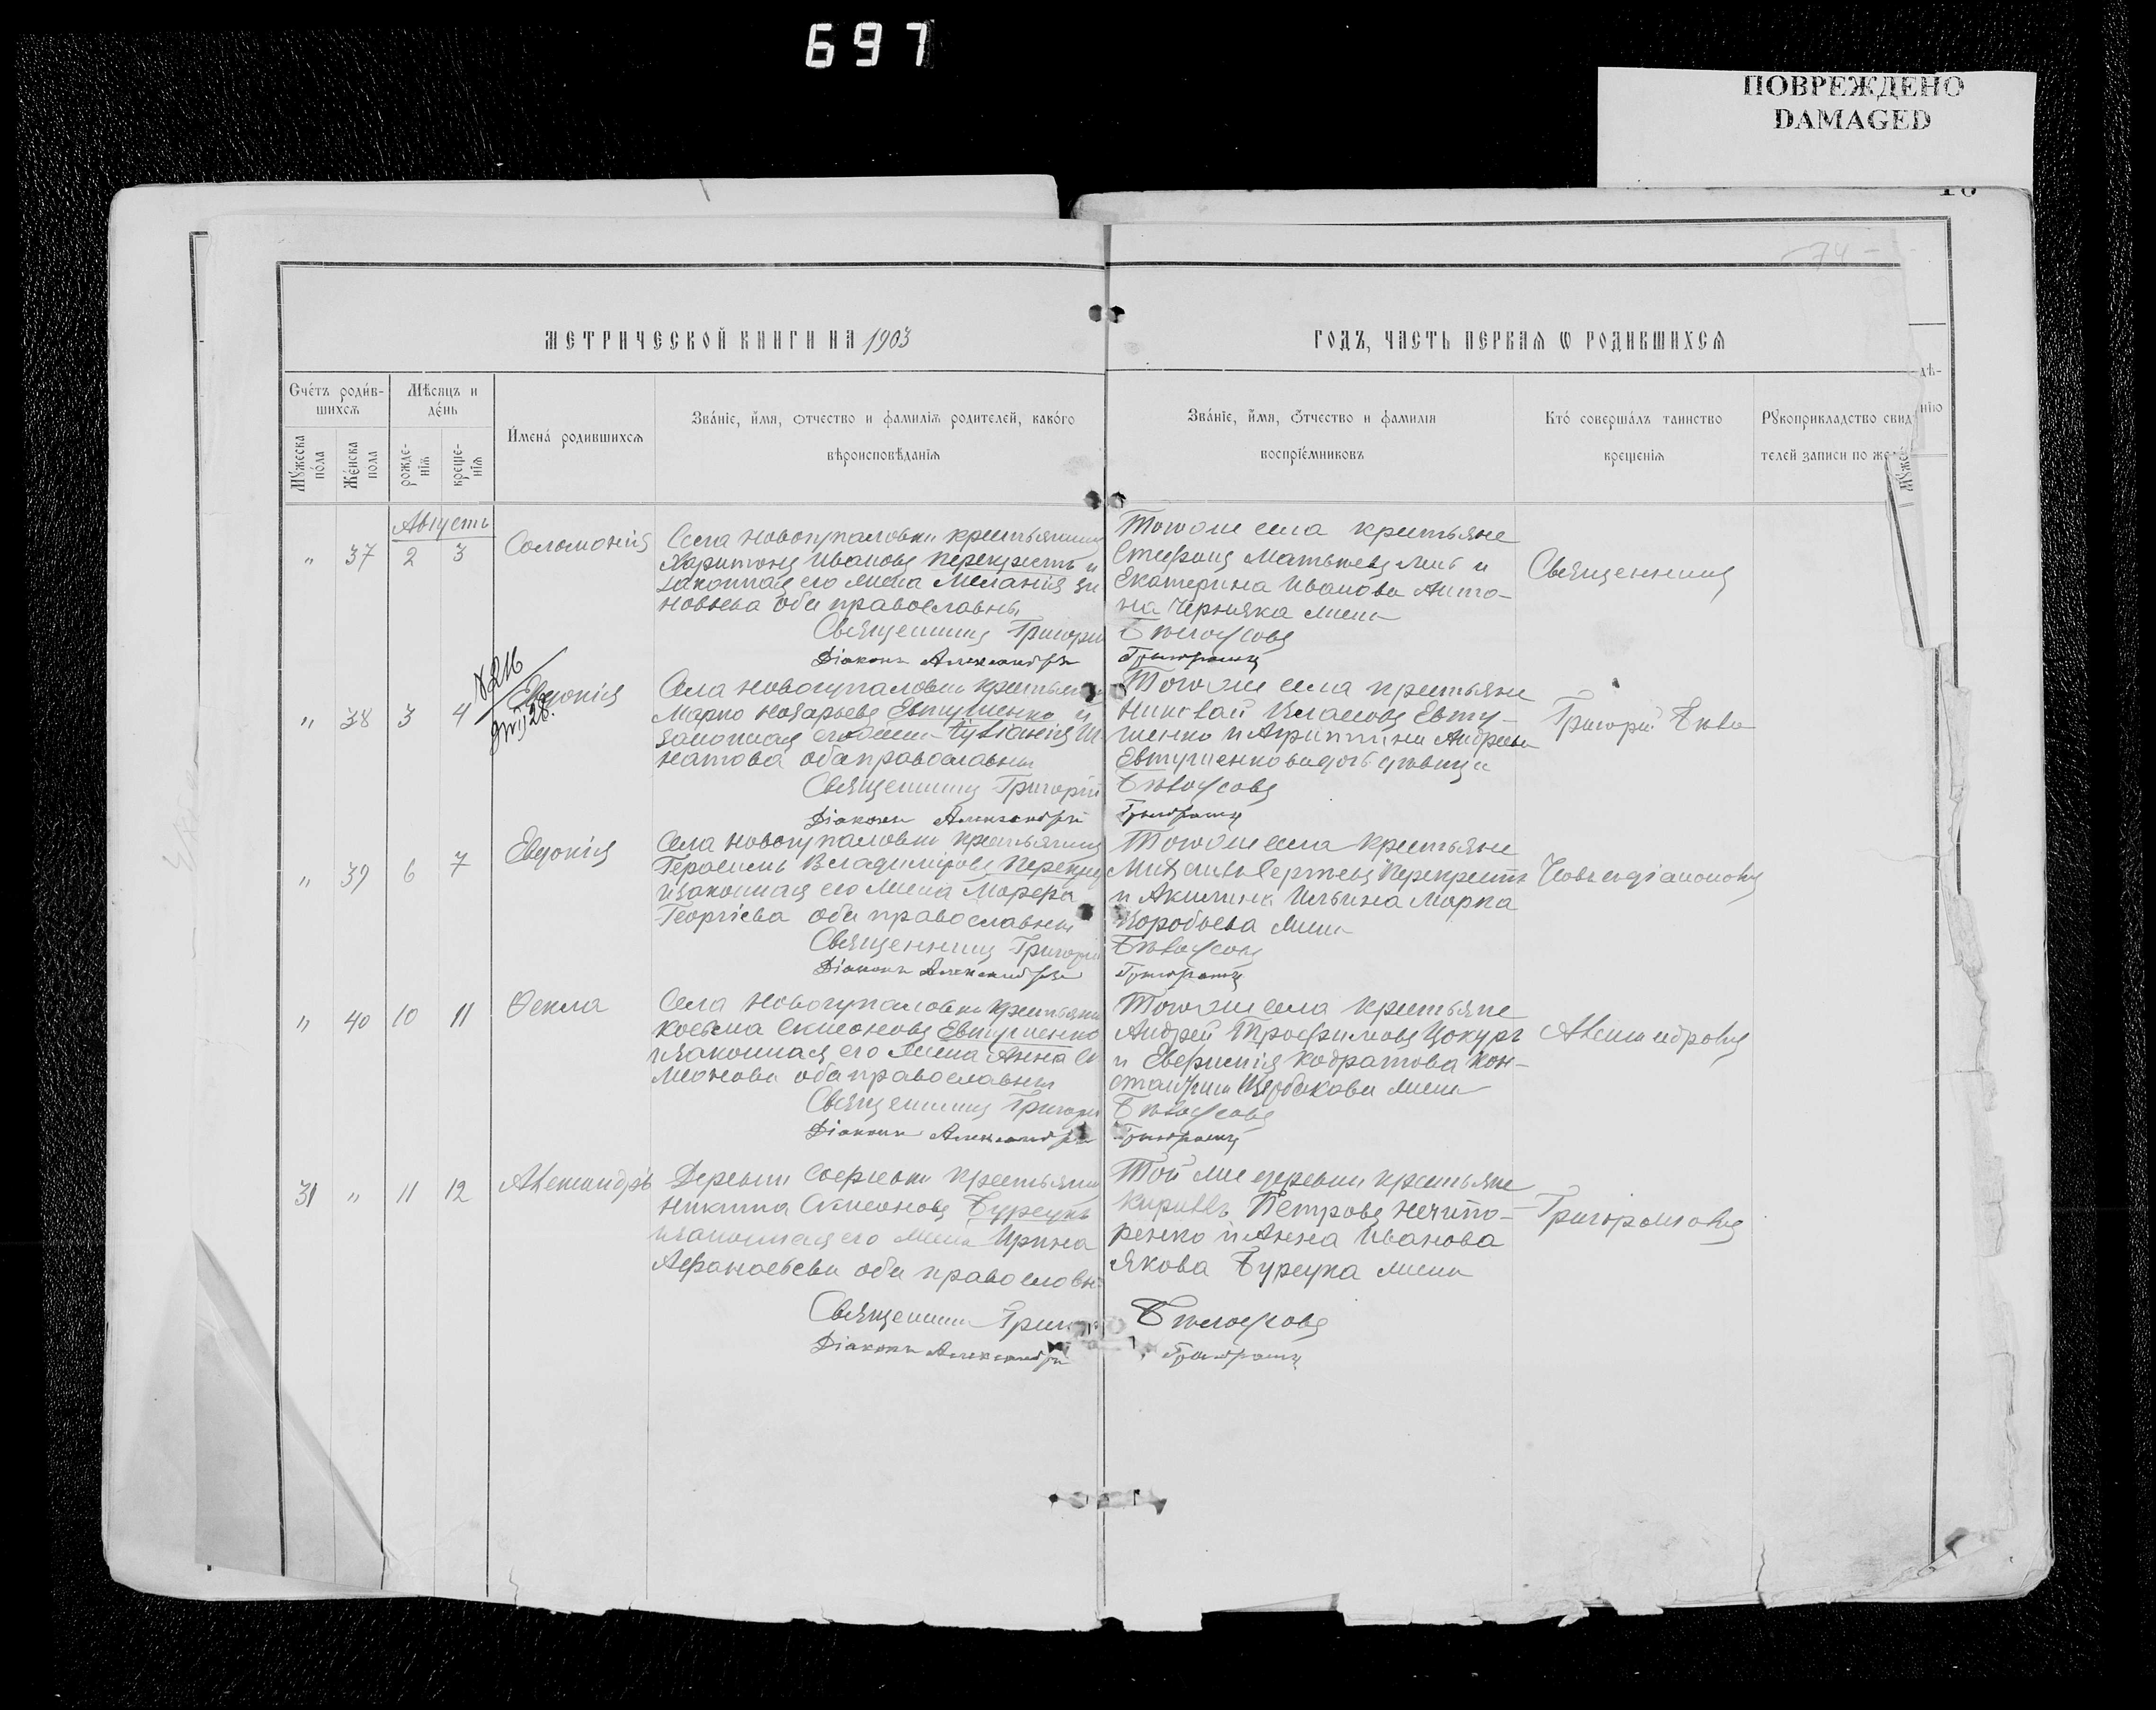 697
ПОВРЕЖДЕНО
DAMAGED
74
МЕТРИЧЕСКОЙ КНИГИ НА 1903
ГОДЪ, ЧАСТЬ ПЕРВАЯ Ѡ РОДИВШИХСЯ
Счетъ родив-
шихся
Мѣсяцъ и
день
Имена родившихся
Званіе, имя, отчество и фамилія родителей, какого
вѣроисповѣданія
Званіе, имя, отчество и фамилія
воспріемниковъ
Кто совершалъ таинство
крещенія
Рукоприкладство свид
телей записи по же
Мужеска
пола
Женска
пола
рожде-
нія
креще-
нія
Августъ
" 37 2 3 Соломонія
Села Новогупаловки крестьянинъ
Харитонъ Ивановъ Перекрестъ и
законная его жена Меланія Зи
новьева оба православны
Священникъ Григорій
Діаконъ Александръ
Того же села крестьяне
Стефанъ Матьвеевъ и
Екатерина Иванова Анто-
на Черняка жена
Бѣлоусовъ
Священникъ
" 38 3 4 Евдокія
Села Новогупаловки крестьянинъ
Марко Назарьевъ Евтушенко и
законная его жена Иг
натова оба православны
Священникъ Григорій
Діаконъ Александръ
Того же села крестьяне
Николай Власовъ Евту-
шенко и Агриппина Андреева
Евтушенкова дочь дѣвица
Бѣлоусовъ
Григорій Бѣло
" 39 6 7 Евдокія
Села Новогупаловки крестьянинъ
Герасимъ Владиміровъ
и законная его жена Марфа
Георгіева оба православны
Священникъ Григорій
Діаконъ Александръ
Того же села крестьяне
Михаилъ Сергѣевъ Перекрестъ
и Акилина Ильина Марка
Коробьева жена
Бѣлоусовъ
" 40 10 11 Ѳекла
Села Новогупаловки крестьянинъ
Косьма Симеоновъ Евтушенко
и законная его жена Анна Си
меонова оба православны
Священникъ Григорій
Діаконъ Александръ
Того же села крестьяне
Андрей Трофимовъ Цокуръ
и Евфимія Кодратова Кон-
стантина Щербакова жена
Бѣлоусовъ
Александровъ
31 " 11 12 Александръ
Деревни Софіевки крестьянинъ
Никита Симеоновъ Бурсукъ
и законная его жена Ирина
Афанасьева оба православны
Священникъ Григорій
Діаконъ Александръ
Той же деревни крестьяне
Кириллъ Петровъ Нечипо-
ренко и Анна Иванова
Якова Бурсука жена
Бѣлоусовъ